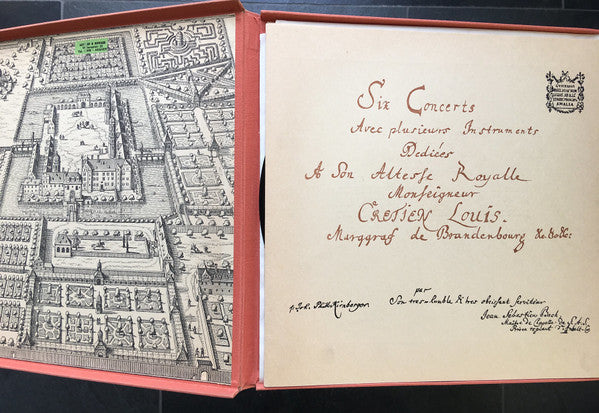 Six Concerts
Avec plusieurs Instruments
Dediées
A Son Altesse Royalle
Monseigneur
CRETIEN LOUIS.
Marggraf de Brandenbourg &c:&c:&c:
par
Son tres-humble & tres obeissant serviteur
p. Joh. Phil. Kirnberger.
Jean Sebastien Bach
Maitre de Chapelle de S.A.S.
Prince regnant d'Anhalt-
AMALIA